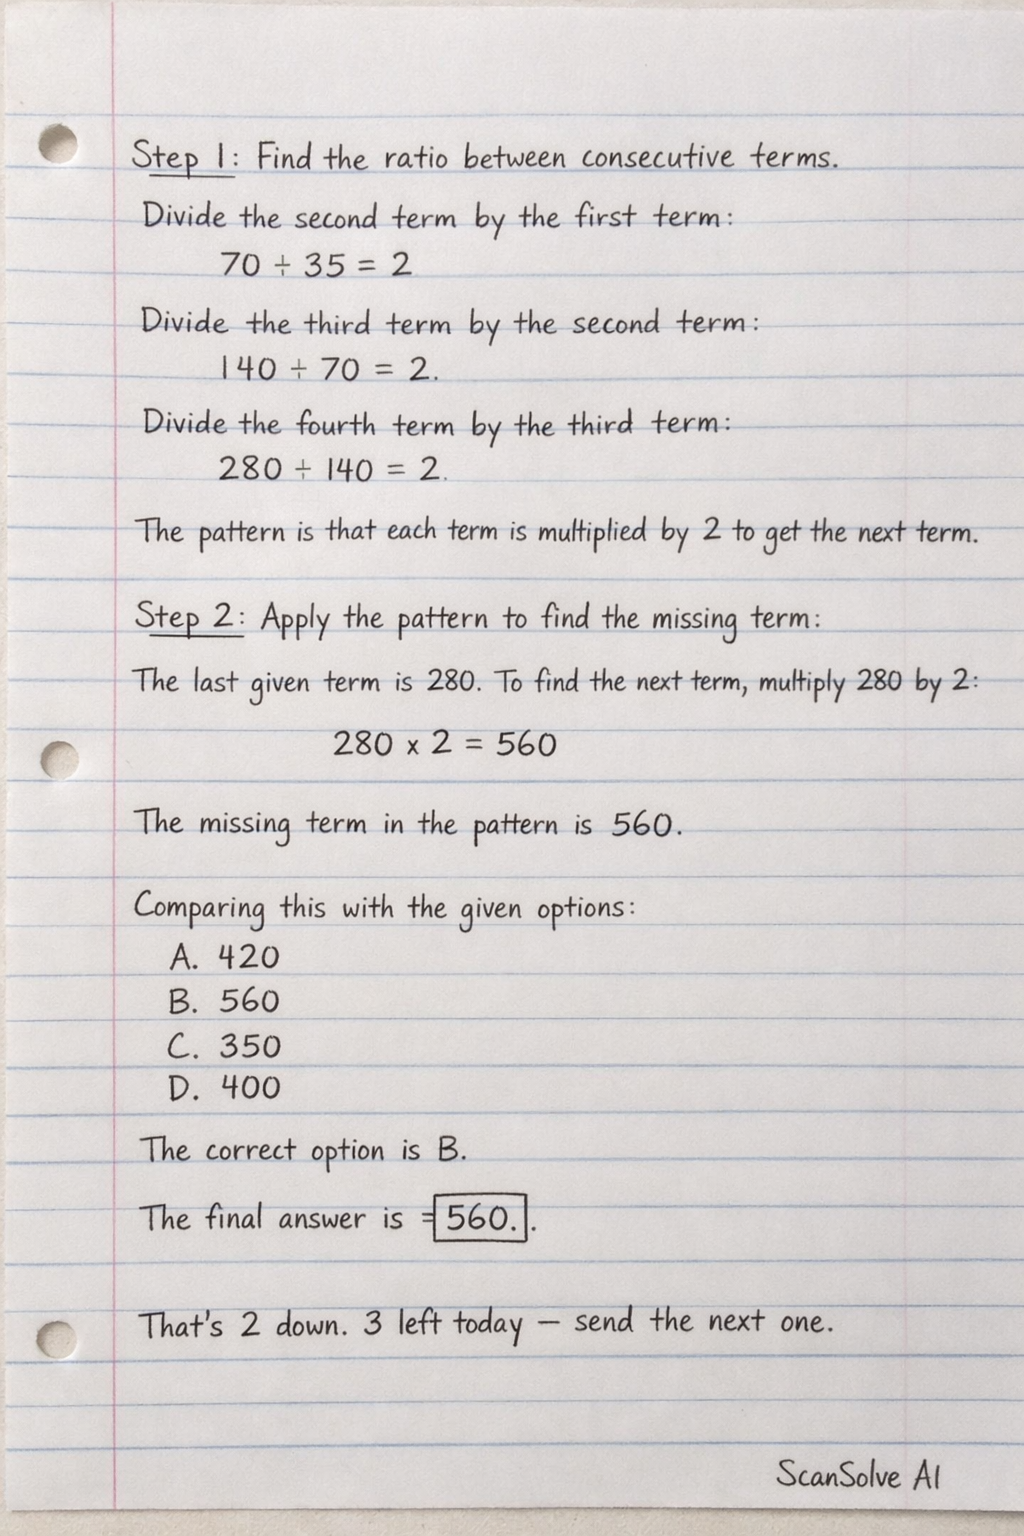 Step 1: Find the ratio between consecutive terms.
Divide the second term by the first term:
70 ÷ 35 = 2
Divide the third term by the second term:
140 ÷ 70 = 2.
Divide the fourth term by the third term:
280 ÷ 140 = 2.
The pattern is that each term is multiplied by 2 to get the next term.
Step 2: Apply the pattern to find the missing term:
The last given term is 280. To find the next term, multiply 280 by 2:
280 x 2 = 560
The missing term in the pattern is 560.
Comparing this with the given options:
A. 420
B. 560
C. 350
D. 400
The correct option is B.
The final answer is =560..
That's 2 down. 3 left today — send the next one.
ScanSolve AI